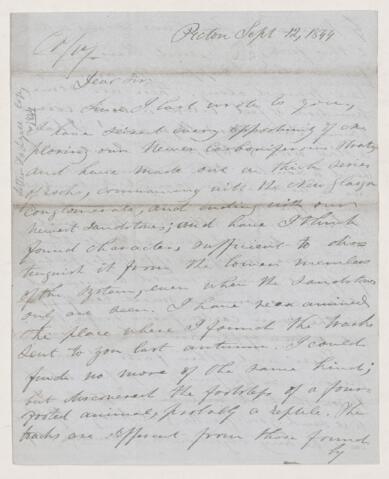 Copy
Pictou Sept 12, 1844
Dear Sir
Since I last wrote to you,
I have seized every opportunity of ex
ploring our Newer Carboniferous strata
and have made out a thick series
of rocks, commencing with the New Glasgow
Conglomerate, and ending with our
newest sandstones; and have I think
found characters sufficient to dis
tinguish it from the lower members
of the system, even when the sandstones
only are seen. I have reexamined
the place where I found the tracks
sent to you last autumn. I could
find no more of the same kind;
but discovered the footsteps of a four
footed animal, probably a reptile. The
tracks are different from those found
by
Letter to Lyell Copy
1844